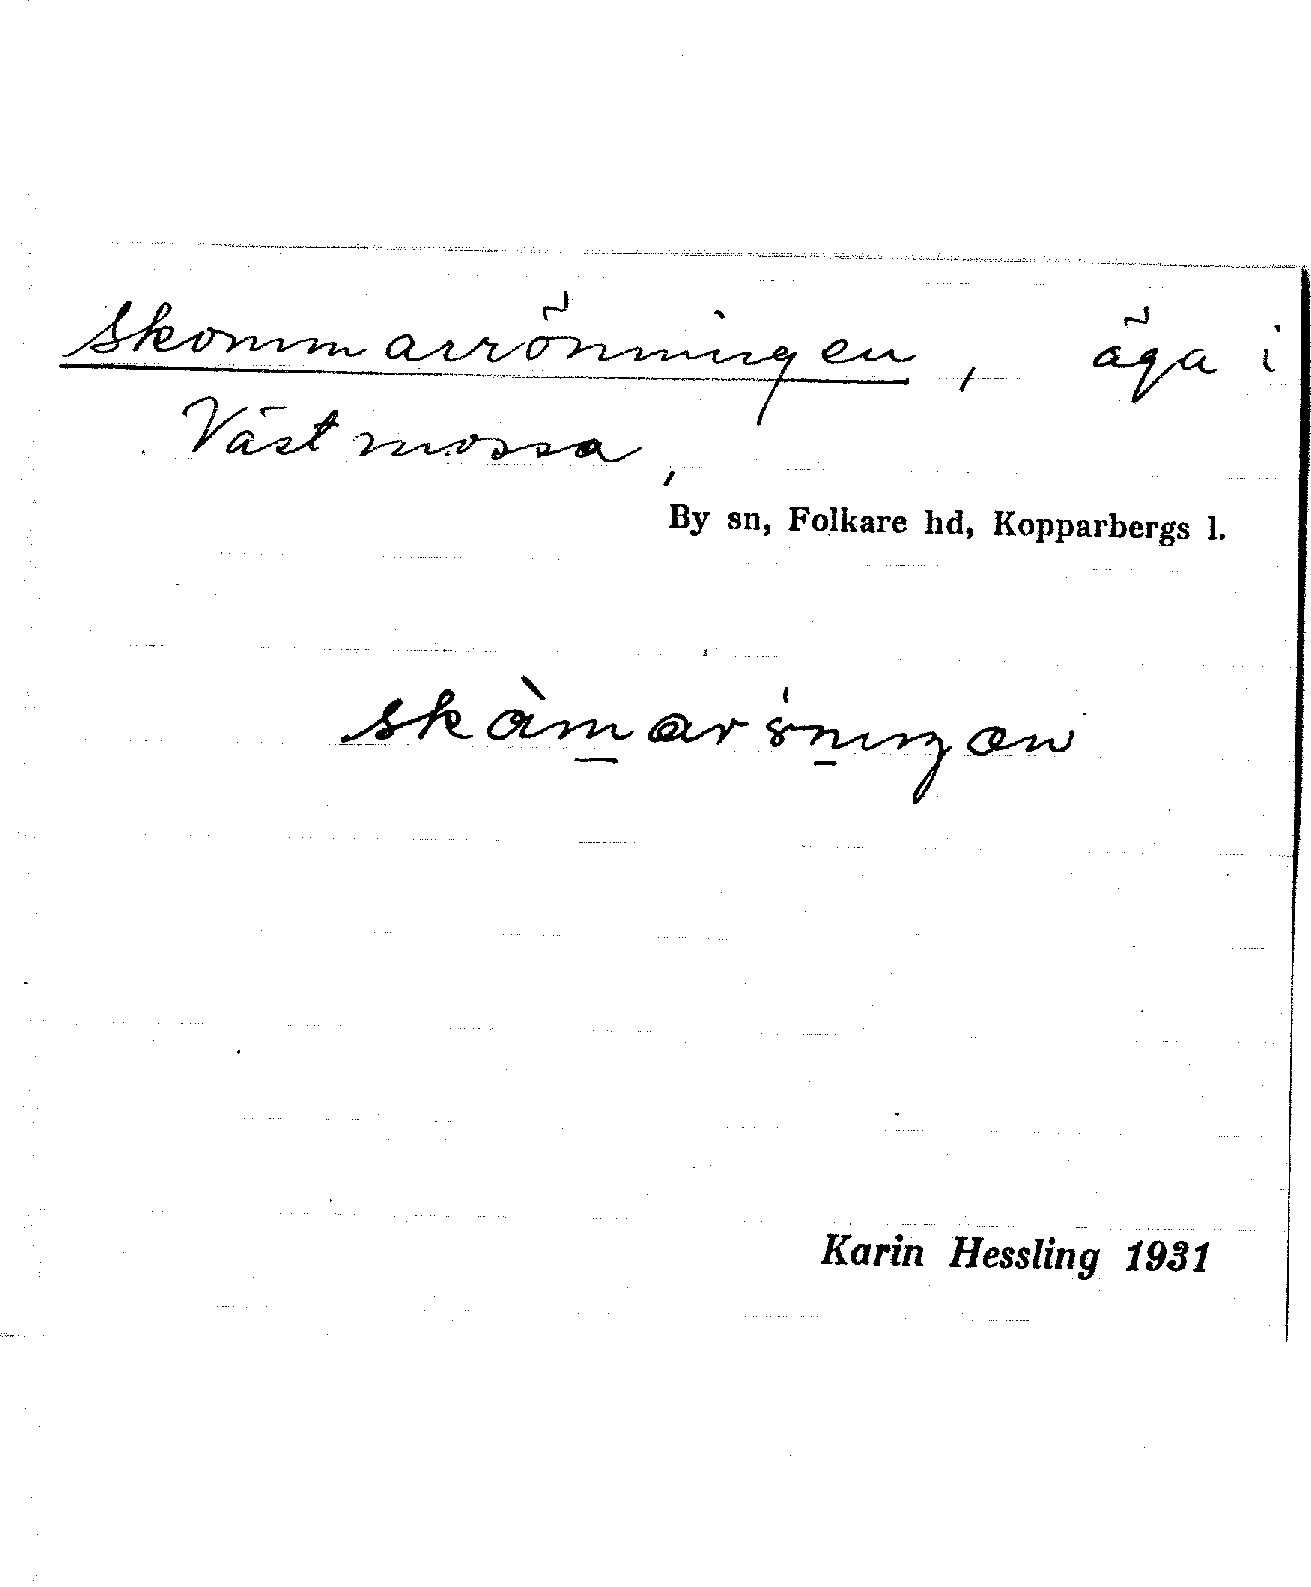 Skommarrönningen, äga i
Västmossa,
By sn, Folkare hd, Kopparbergs l.
Karin Hessling 1931